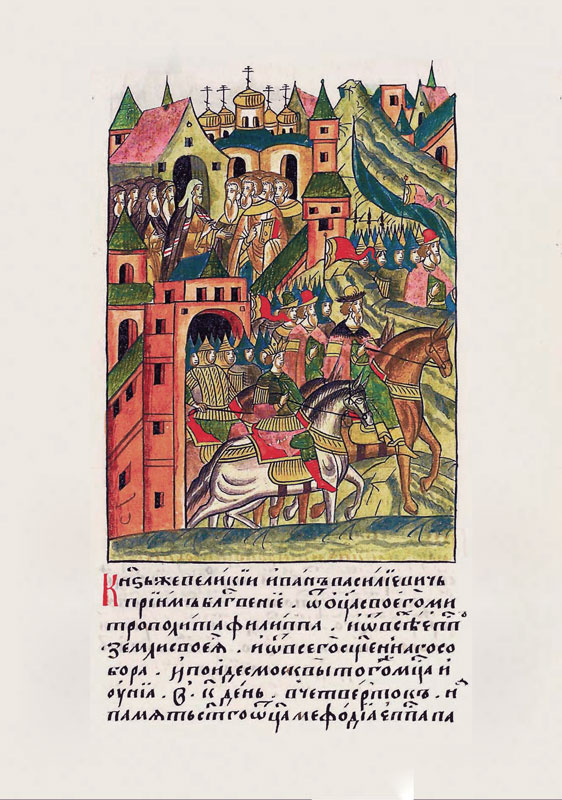 Кн҃зь же великїи иванъ васїлїевичь
прїимъ благ҇веніе . ѿ оц҃а своего ми
трополита филиппа . и ѿ всѣⷯ еп҇пъ
земли своеѧ . и ѿ всего сщ҃еннаго со
бора . и поиде с москвы тогоⷤ мц҃а и
оунїа . в҃ . к҃ день . в четвертокъ . нⷶ
памѧть ст҃го ѿц҃а мефодїа еп҇па па